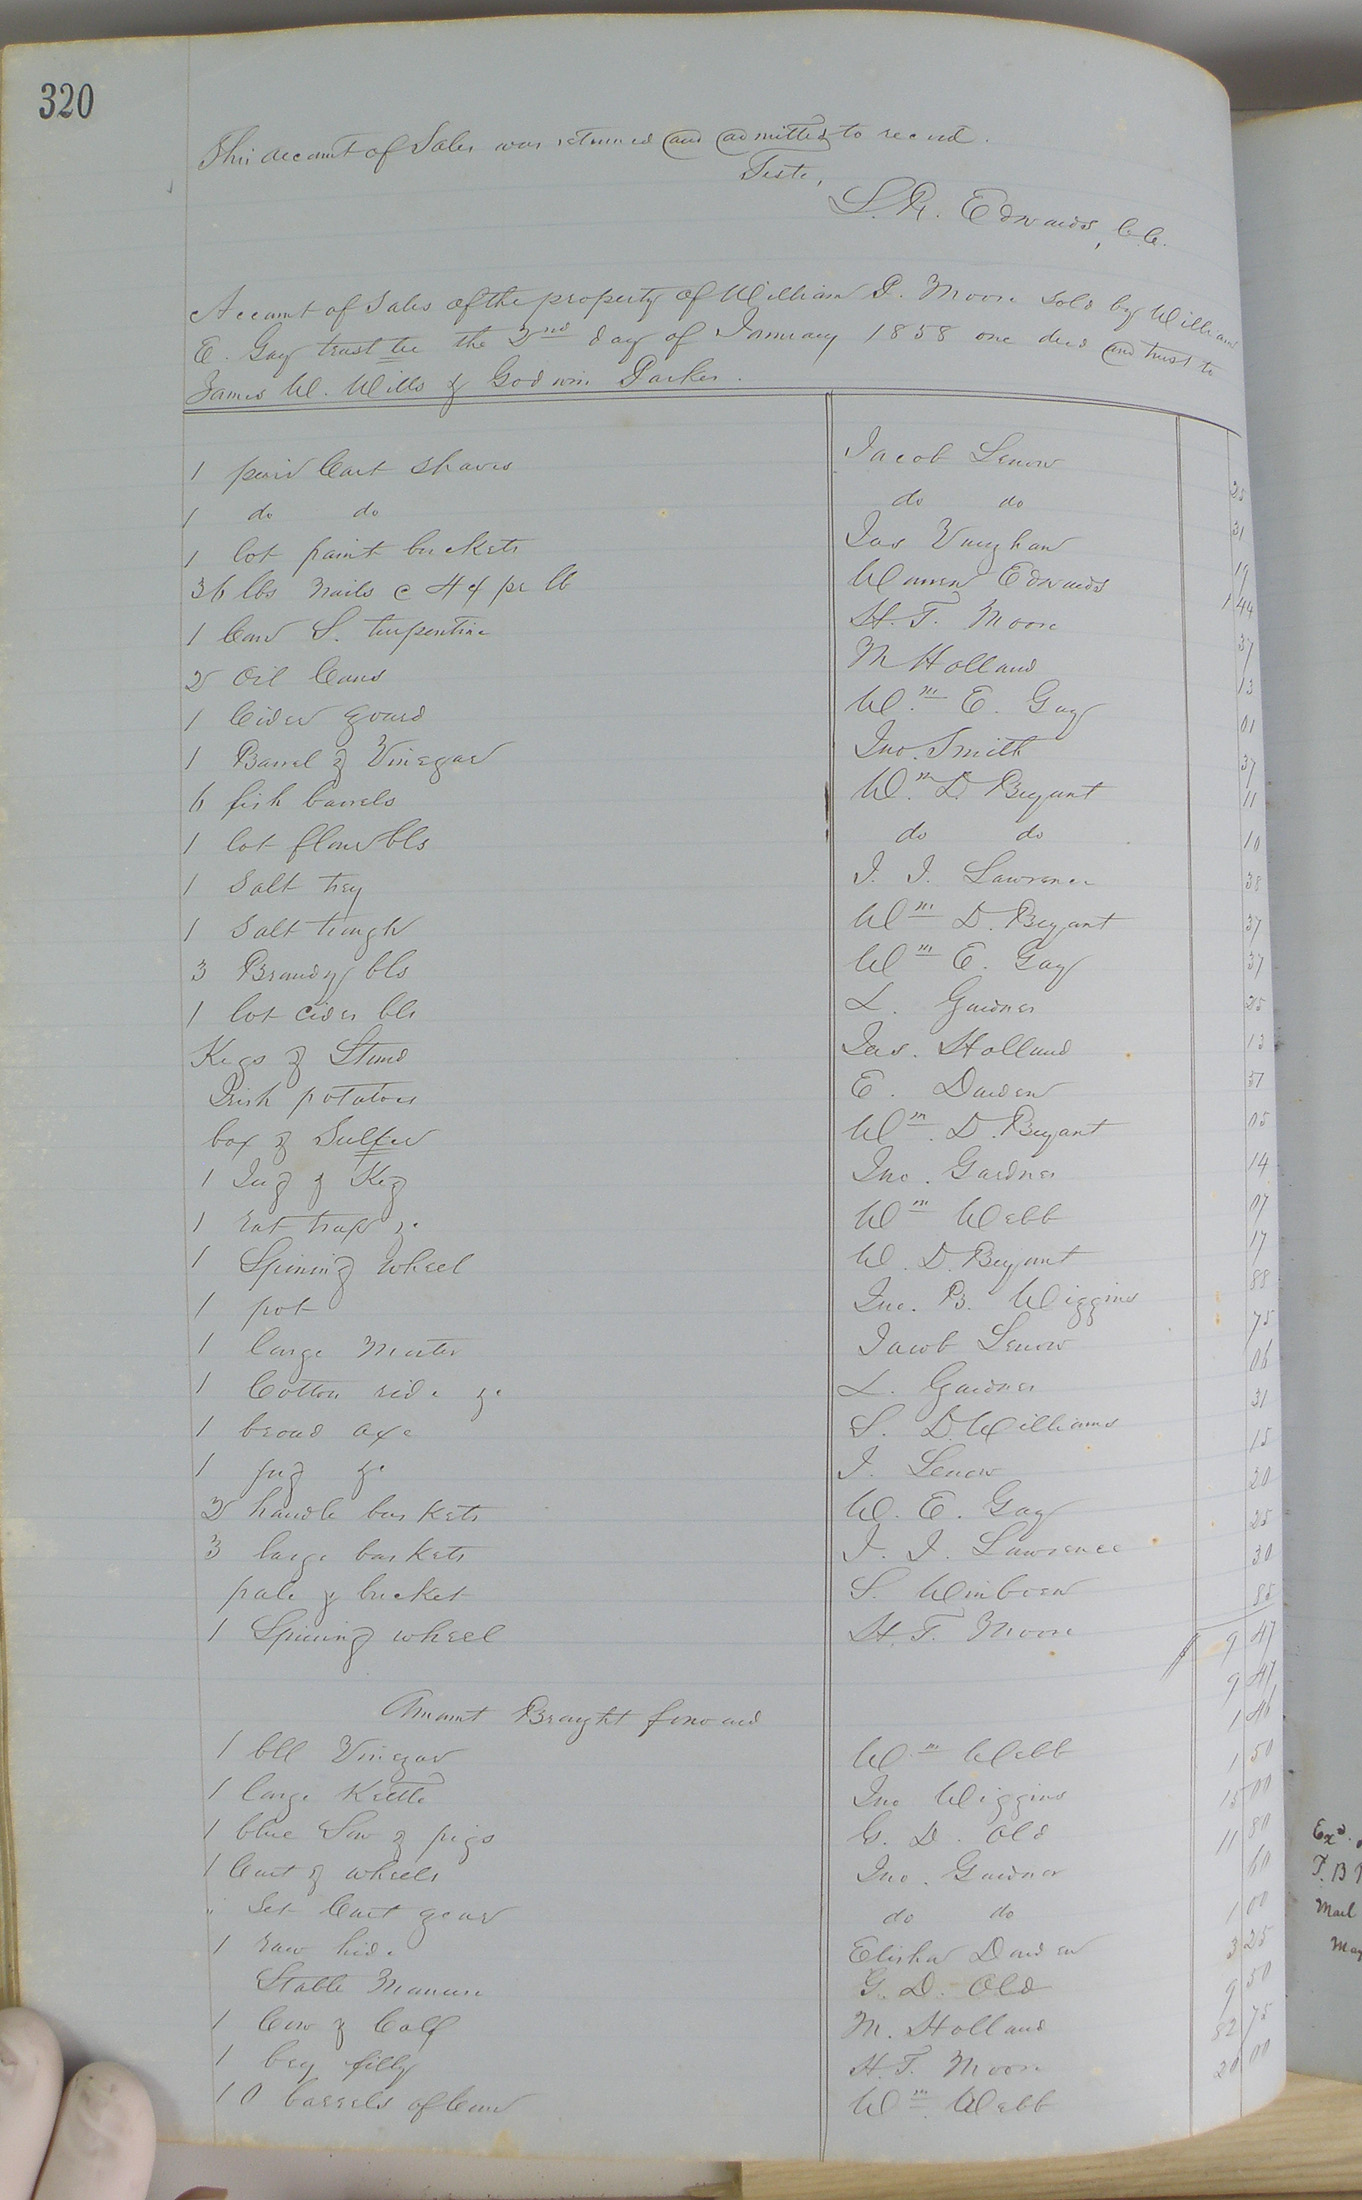 320
This account of Sales was returned and admitted to record.
Teste,
S. R. Edwards, C.C.
Account of Sales of the property of William P. Moore sold by William
E. Gay trust tee the 2nd day of January 1858 one deed and trust to
James W. Wills & Godwin Parker.
1 pair Cart shaves Jacob Lenow 25
1 do do do do 31
1 lot paint buckets Jas Vaughan 19
36 lbs Nails @ 4¢ pr lb Warren Edwards 1 44
1 Can S. turpentine H. T. Moore 37
2 Oil Cans M Holland 13
1 Cider gourd Wm E. Gay 01
1 Barrel & Vinegar Jno. Smith 37
6 fish barrels Wm D. Bryant 11
1 lot flour bls do do 10
1 Salt trey J. J. Lawrence 38
1 Salt trough Wm D. Bryant 37
3 Brandy bls Wm E. Gay 37
1 lot cider bls L. Gardner 25
Kegs & Stand Jas. Holland 13
Irish potatoes E. Darden 51
box & Sulfer Wm. D. Bryant 05
1 Jug & Keg Jno. Gardner 14
1 Rat trap &c Wm Webb 07
1 Spining wheel W. D. Bryant 17
1 pot Jno. B. Wiggins 88
1 large Morter Jacob Lenow 75
1 Cotton ride &c L. Gardner 06
1 broad axe S. D. Williams 31
1 jug &c J. Lenow 15
2 handle baskets W. E. Gay 20
3 large baskets J. J. Lawrence 25
pale & bucket S. Winborn 30
1 Spining wheel H. T. Moore 85
$ 9 47
Amount Brought forward 9 47
1 bll Vinegar Wm Webb 1 46
1 large Kettle Jno Wiggins 1 50
1 blue Sow & pigs G. D. Old 15 00
1 Cart & wheels Jno. Gardner 11 80
" Set Cart gear do do 60
1 raw hide Elisha Darden 1 00
Stable Manure G. D. Old 3 25
1 Cow & Calf M. Holland 9 50
1 bey filly H. T. Moore 52 75
10 barrels of Corn Wm Webb 20 00
Exd.
T. B
Mail
May